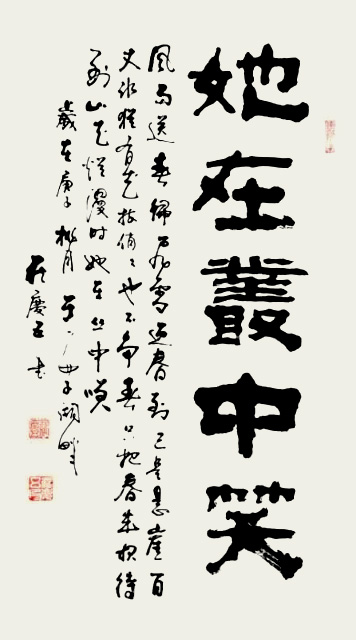 她在叢中笑
風雨送春歸飛雪迎春到已是懸崖百
丈冰猶有花枝俏〻也不争春只把春来報待
到山花爛漫時她在丛中笑
歲在庚子桃月于西子湖畔
慶書